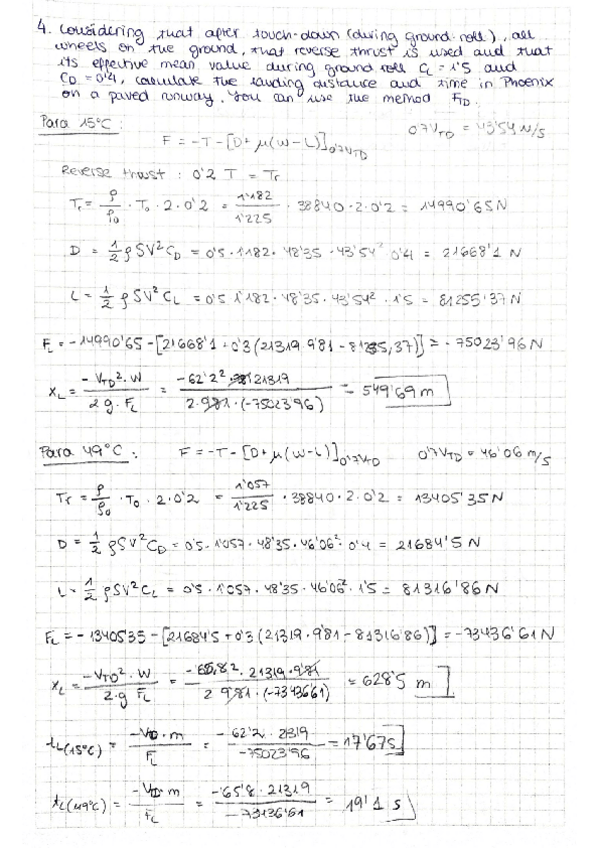 4. Considering that after touch-down (during ground roll), all
wheels on the ground, that reverse thrust is used and that
its effective mean value during ground roll CL = 1'5 and
CD = 0'4, calculate the landing distance and time in Phoenix
on a paved runway. You can use the method FTD.
Para 15°C:
F = -T - [D + μ(W - L)]0'7VTD
0'7VTD = 43'54 N/s
Reverse thrust : 0'2 T = Tr
Tr = ρ/ρ0 · T0 · 2 · 0'2 = 1'182/1'225 · 38840 · 2 · 0'2 = 14990'65 N
D = 1/2 ρSV²CD = 0'5 · 1'182 · 48'35 · 43'54² 0'4 = 21668'1 N
L = 1/2 ρSV²CL = 0'5 1'182 · 48'35 · 43'54² · 1'5 = 81255'37 N
FL = -14990'65 - [21668'1 + 0'3 (21319 · 9'81 - 81255,37)] = -75023'96 N
XL = -VTD² · W / 2 g · FL = -62'2² · 9'81 21319 / 2 · 9'81 · (-75023'96) = 549'69 m
Para 49°C :
F = -T - [D + μ(W - L)]0'7VTD
0'7VTD = 46'06 m/s
Tr = ρ/ρ0 · T0 · 2 · 0'2 = 1'057/1'225 · 38840 · 2 · 0'2 = 13405'35 N
D = 1/2 ρSV²CD = 0'5 · 1'057 · 48'35 · 46'06² · 0'4 = 21684'5 N
L = 1/2 ρSV²CL = 0'5 · 1'057 · 48'35 · 46'06² · 1'5 = 81316'86 N
FL = -13405'35 - [21684'5 + 0'3 (21319 · 9'81 - 81316'86)] = -73436'61 N
XL = -VTD² · W / 2 · g FL = -65,8² · 21319 · 9'81 / 2 9'81 · (-73436'61) = 628'5 m
tL(15°C) = -VTD · m / FL = -62'2 · 21319 / -75023'96 = 17'67 s
tL(49°C) = -VTD · m / FL = -65'8 · 21319 / -73136'61 = 19'1 s